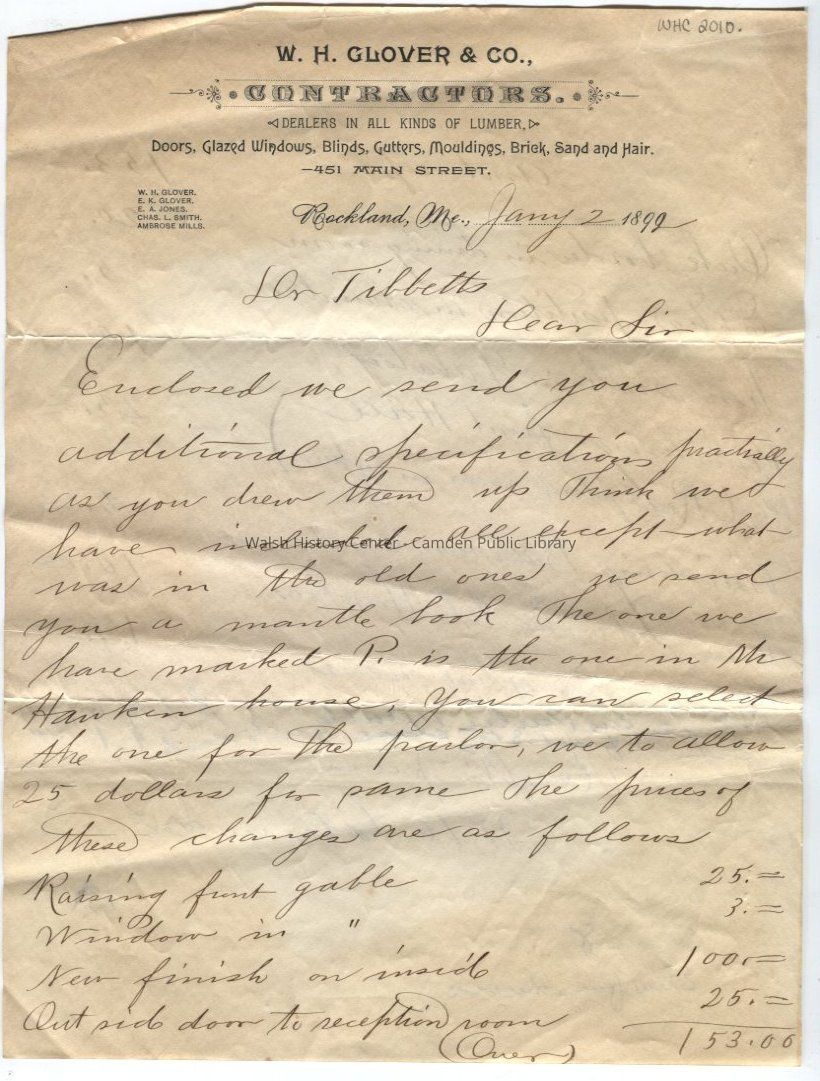 WHC 2010.
W. H. GLOVER & CO.,
CONTRACTORS.
DEALERS IN ALL KINDS OF LUMBER,
Doors, Glazed Windows, Blinds, Gutters, Mouldings, Brick, Sand and Hair.
—451 MAIN STREET.
W. H. GLOVER.
E. K. GLOVER.
E. A. JONES.
CHAS. L. SMITH.
AMBROSE MILLS.
Rockland, Me., Jany 2 1899
Dr Tibbetts
Dear Sir
Enclosed we send you
additional specifications practically
as you drew them up Think we
have included all except what
Walsh History Center - Camden Public Library
was in the old ones we send
you a mantle book The one we
have marked P. is the one in Mr
Hanken house, You can select
the one for the parlor, we to allow
25 dollars for same The prices of
these changes are as follows
Raising frunt gable 25.=
Window in " 3.=
New finish on inside 100.=
Out side door to reception room 25.=
153.00
(Over)